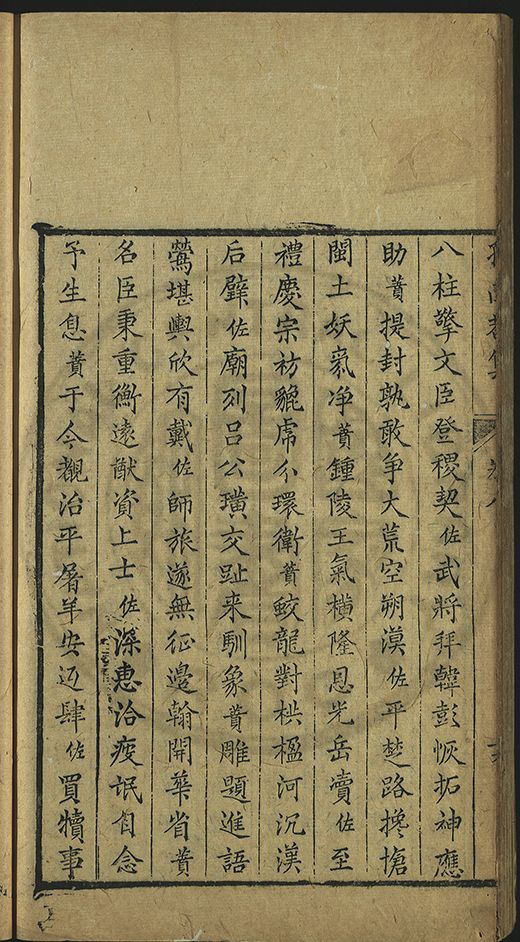 八柱擎文臣登稷契佐武將拜韓彭恢拓神應
助蕡提封孰敢争大荒空朔漠佐平楚路攙搶
閩土妖氛净蕡鍾陵王氣横隆恩光岳瀆佐至
禮慶宗祊貔虎分環衛蕡蛟龍對栱楹河沉漢
后璧佐廟列吕公璜交趾来馴象蕡雕題進語
鶯堪輿欣有戴佐師旅遂無征邊翰開華省蕡
名臣秉重衡遠猷資上士佐深惠洽疲氓自念
予生息蕡于今覩治平屠羊安近肆佐買犢事